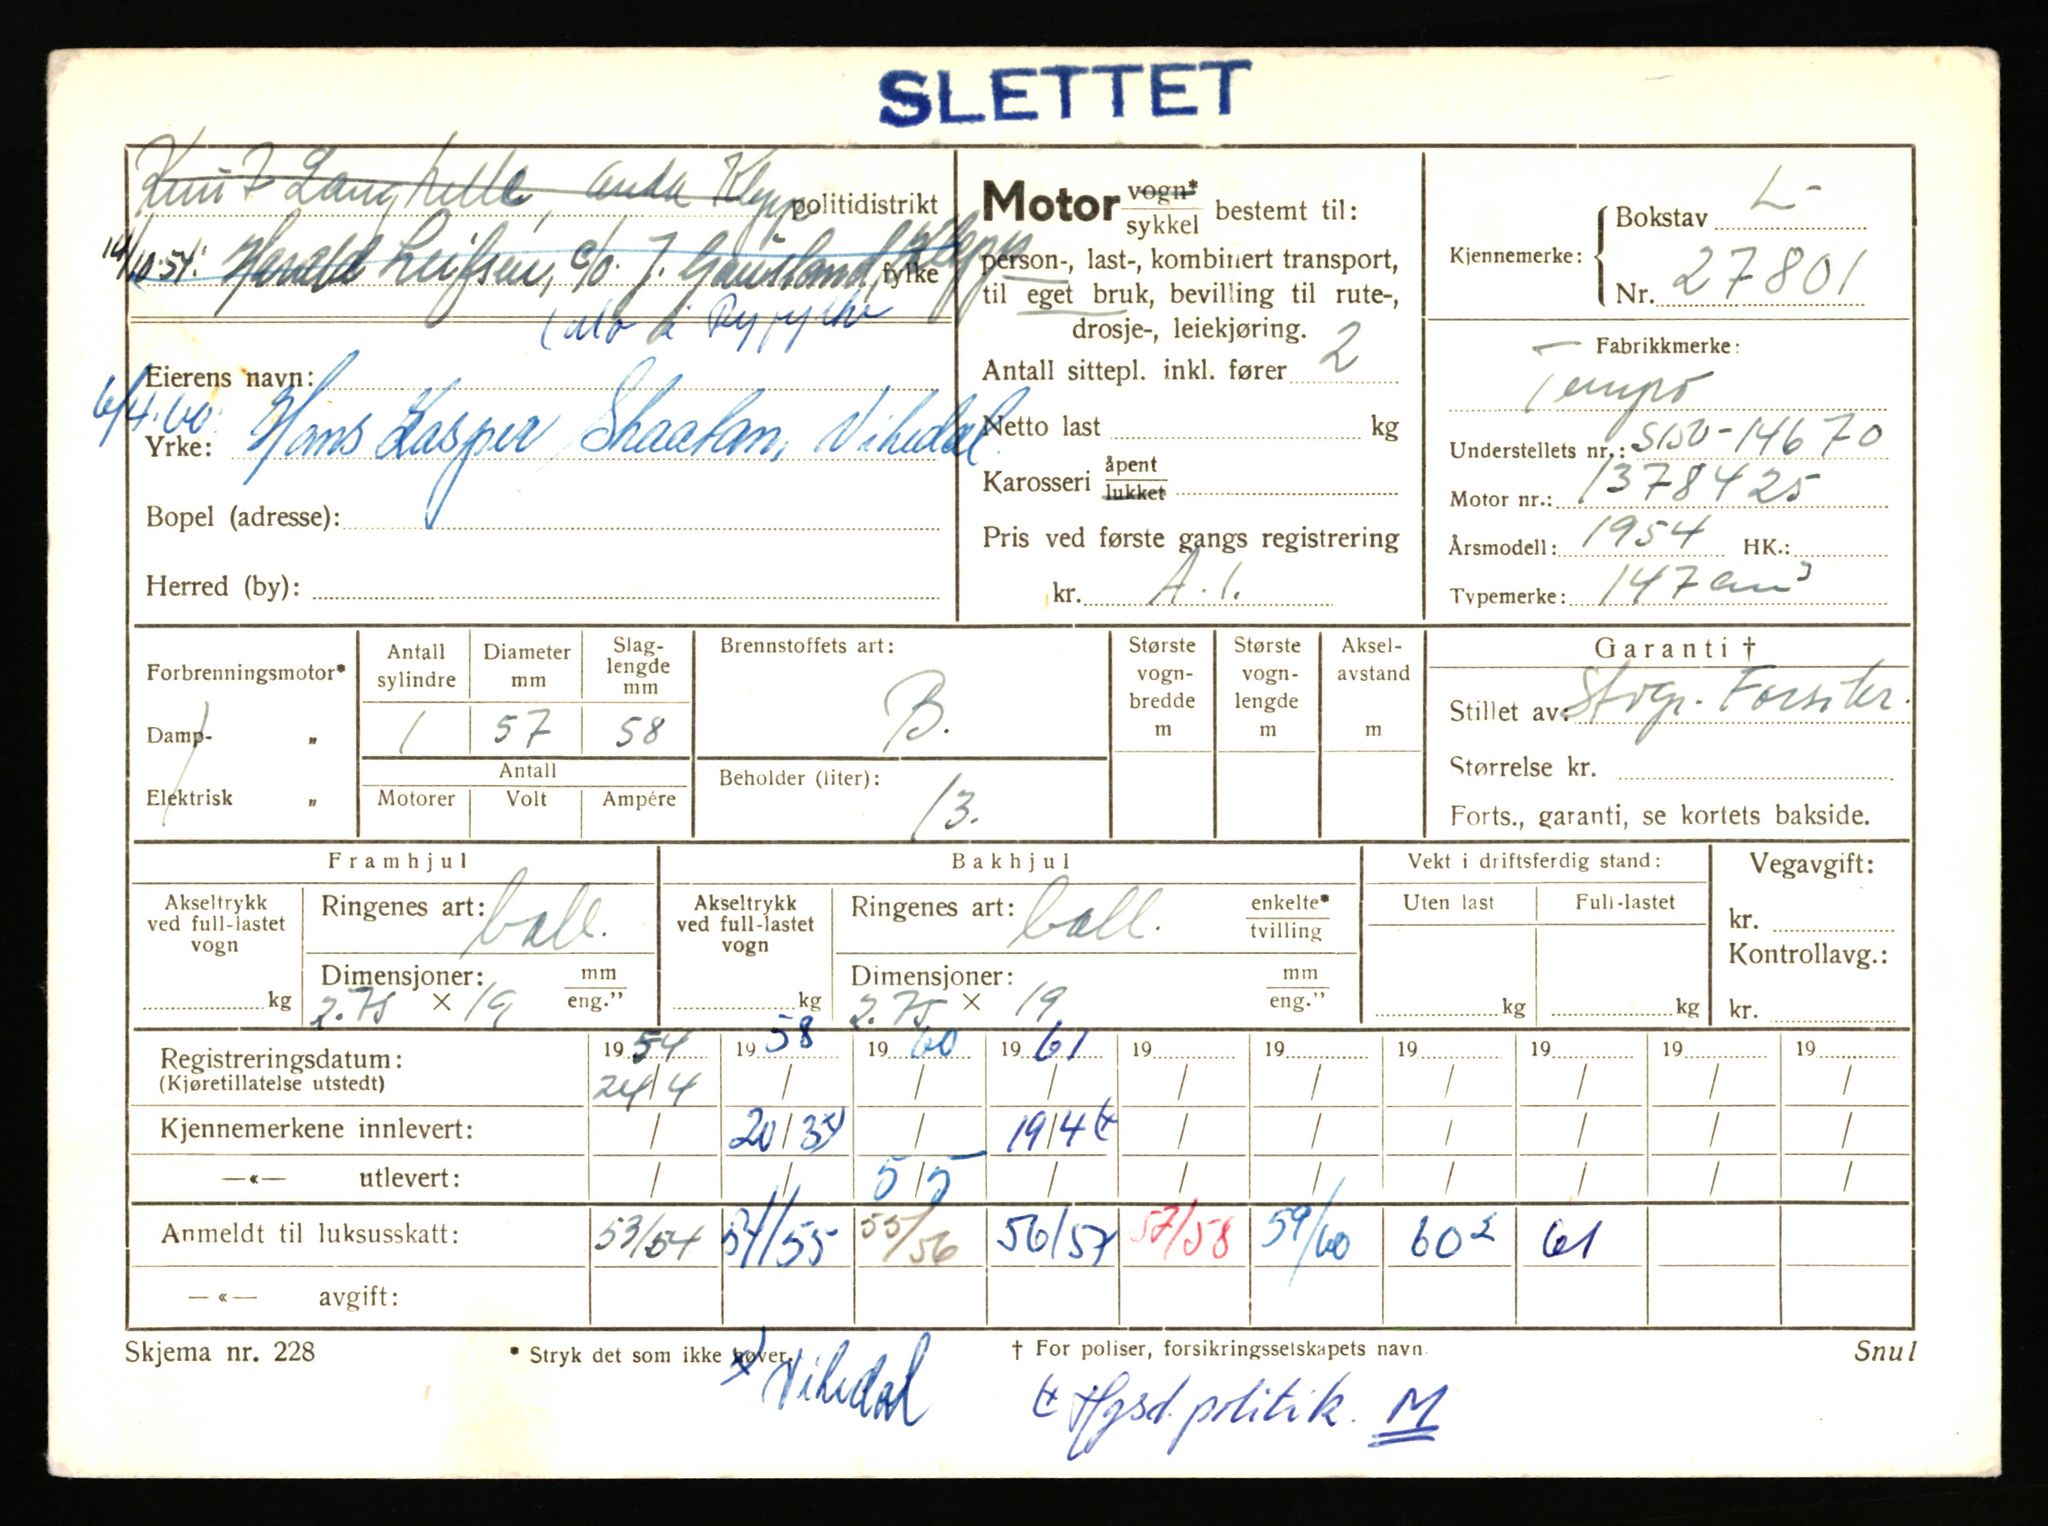 SLETTET
Knut Langhelle, Anda Klepp politidistrikt
14/10.54: Harald Leifsen, c/o. J. Gausland, Klepp fylke
i Ryfylke
Eierens navn:
6/4.60: Hans Kasper Skaatan, Vikedal.
Yrke:
Bopel (adresse):
Herred (by):
Motor vogn* / sykkel bestemt til:
person-, last-, kombinert transport,
til eget bruk, bevilling til rute-,
drosje-, leiekjøring.
Antall sittepl. inkl. fører 2
Netto last kg
Karosseri åpent / lukket
Pris ved første gangs registrering
kr. A.1.
Kjennemerke: Bokstav L-
Nr. 27801
Fabrikkmerke:
Tempo
Understellets nr.: S150-14670
Motor nr.: 1378425
Årsmodell: 1954 HK.:
Typemerke: 147 cm³
Forbrenningsmotor*
Damp- „
Elektrisk „
Antall sylindre 1
Diameter mm 57
Slaglengde mm 58
Antall
Motorer Volt Ampére
Brennstoffets art:
B.
Beholder (liter):
13.
Største vogn-bredde m
Største vogn-lengde m
Aksel-avstand m
Garanti †
Stillet av: Stvgr. Forsikr.
Størrelse kr.
Forts., garanti, se kortets bakside.
Framhjul
Akseltrykk ved full-lastet vogn kg
Ringenes art: ball.
Dimensjoner: mm / eng."
2.75 × 19
Bakhjul
Akseltrykk ved full-lastet vogn kg
Ringenes art: ball. enkelte* / tvilling
Dimensjoner: mm / eng."
2.75 × 19
Vekt i driftsferdig stand:
Uten last Full-lastet
kg kg
Vegavgift:
kr.
Kontrollavg.:
kr.
Registreringsdatum: 1954 1958 1960 1961 19 19 19 19 19 19
(Kjøretillatelse utstedt) 24/4 / / / / / / / / /
Kjennemerkene innlevert: / 20/3 x) / 19/4 (x / / / / / /
—«— utlevert: / / 5/5 / / / / / / /
Anmeldt til luksusskatt: 53/54 54/55 55/56 56/57 57/58 59/60 60² 61
—«— avgift:
Skjema nr. 228 * Stryk det som ikke høver. † For poliser, forsikringsselskapets navn. Snul
x) Vikedal
(x Hgsd. politik. M